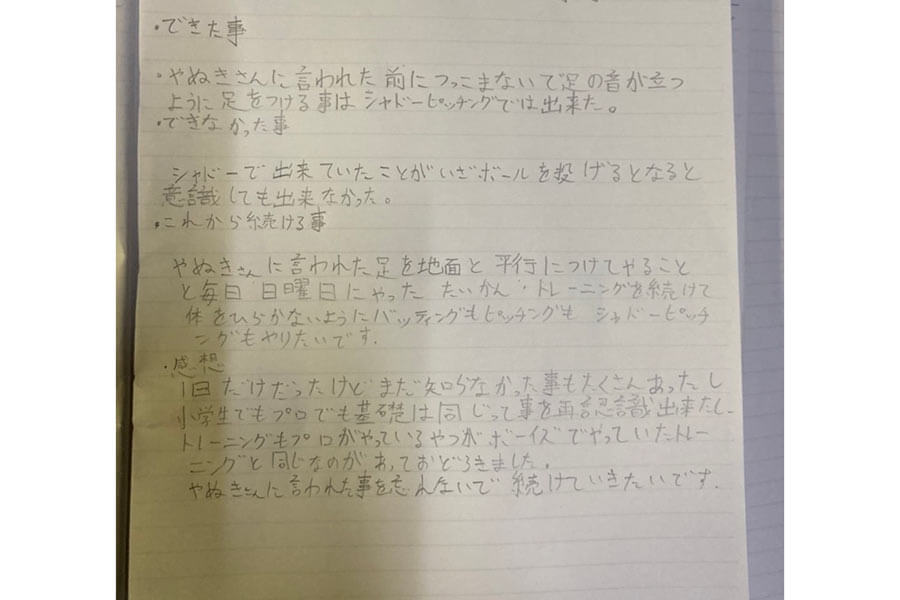 ・できた事
・やぬきさんに言われた前につっこまないで足の音が立つ
ように足をつける事はシャドーピッチングでは出来た。
・できなかった事
シャドーで出来ていたことがいざボールを投げるとなると
意識しても出来なかった。
・これから続ける事
やぬきさんに言われた足を地面と平行につけてやること
と毎日日曜日にやったたいかん・トレーニングを続けて
体をひらかないようにバッティングもピッチングもシャドーピッチ
ングもやりたいです.
・感想
1日だけだったけどまだ知らなかった事もたくさんあったし
小学生でもプロでも基礎は同じって事を再認識出来たし
トレーニングもプロがやっているやつがボーイズでやっていたトレー
ニングと同じなのがあっておどろきました.
やぬきさんに言われた事を忘れないで続けていきたいです.